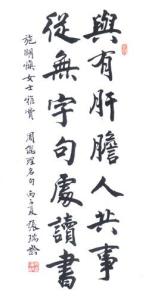 與有肝膽人共事
從無字句處讀書
施明女士雅賞 周總理名句 丙子夏 張瑞齡